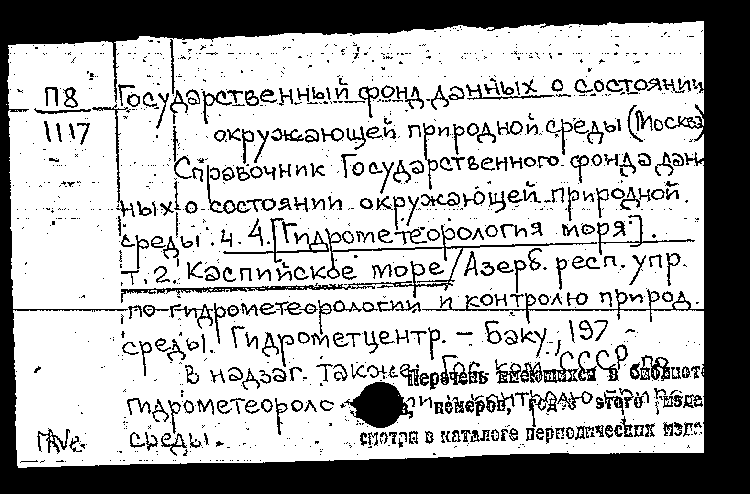 П8
1117
Государственный фонд данных о состоянии
окружающей природной среды (Москва)
Справочник Государственного фонда дан-
ных о состоянии окружающей природной
среды. ч. 4. [Гидрометеорология моря].
т. 2. Каспийское море / Азерб. респ. упр.
по гидрометеорологии и контролю природ.
среды. Гидрометцентр. – Баку, 197 -
В надзаг. также: Гос. ком. СССР по
Перечень имеющихся в библиоте
гидрометеороло и контролю природ.
номеров, год этого изда
среды.
смотри в каталоге периодических изда